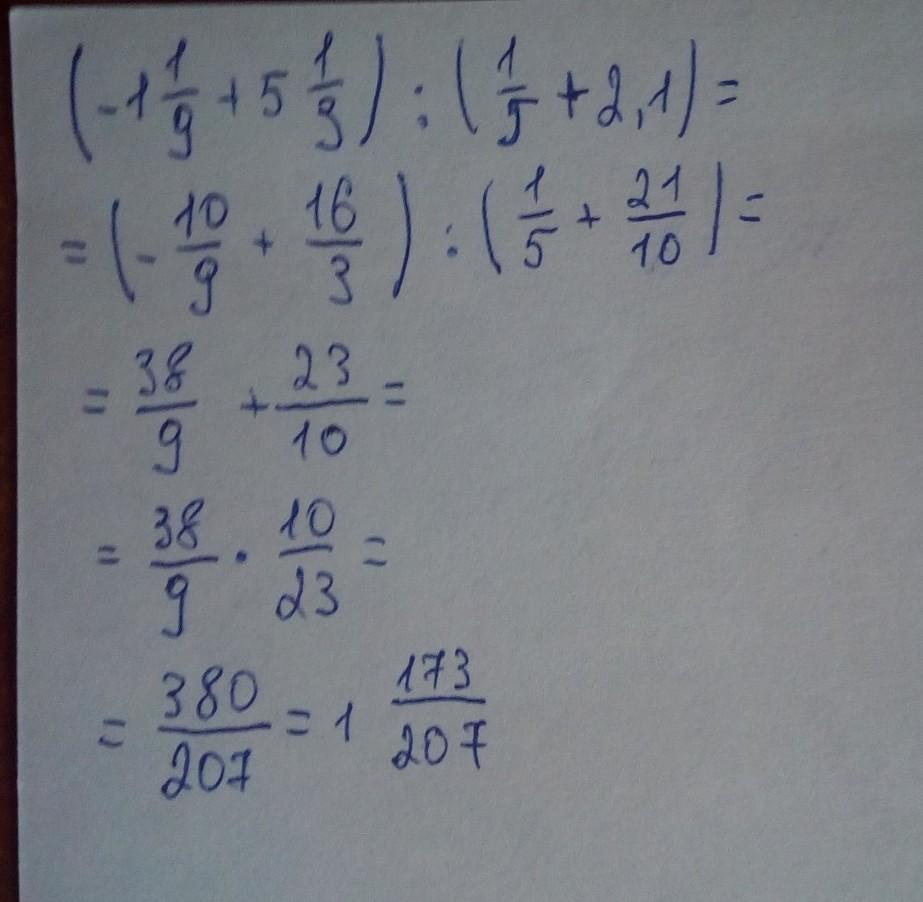 (-1 1/9 + 5 1/3) : (1/5 + 2,1) =
= (-10/9 + 16/3) : (1/5 + 21/10) =
= 38/9 + 23/10 =
= 38/9 · 10/23 =
= 380/207 = 1 173/207